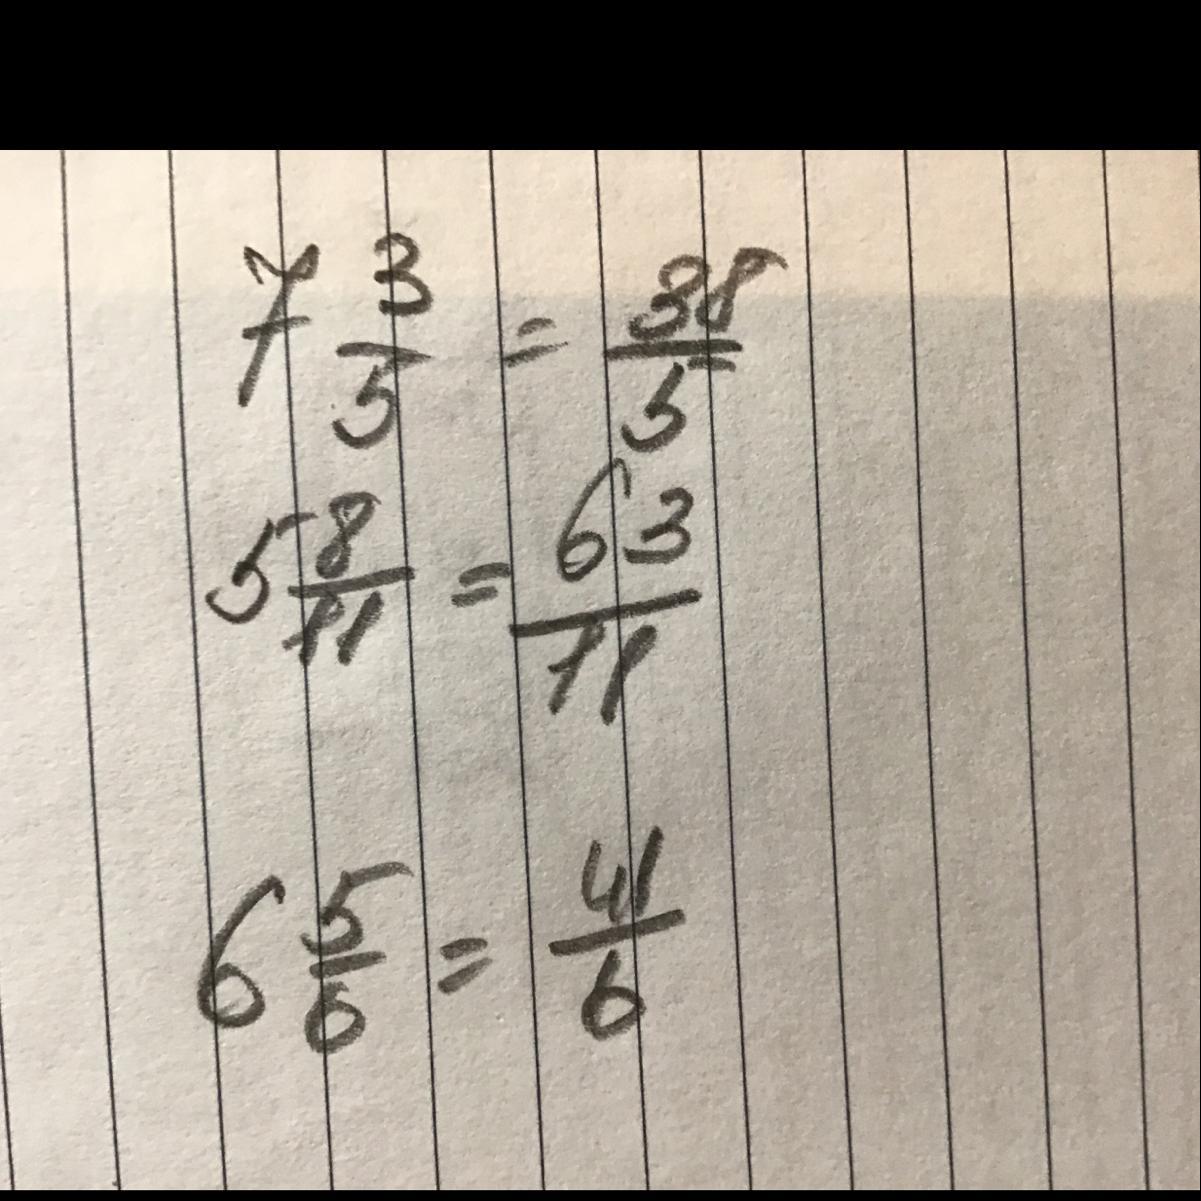 7 3/5 = 38/5
5 8/11 = 63/11
6 5/6 = 41/6